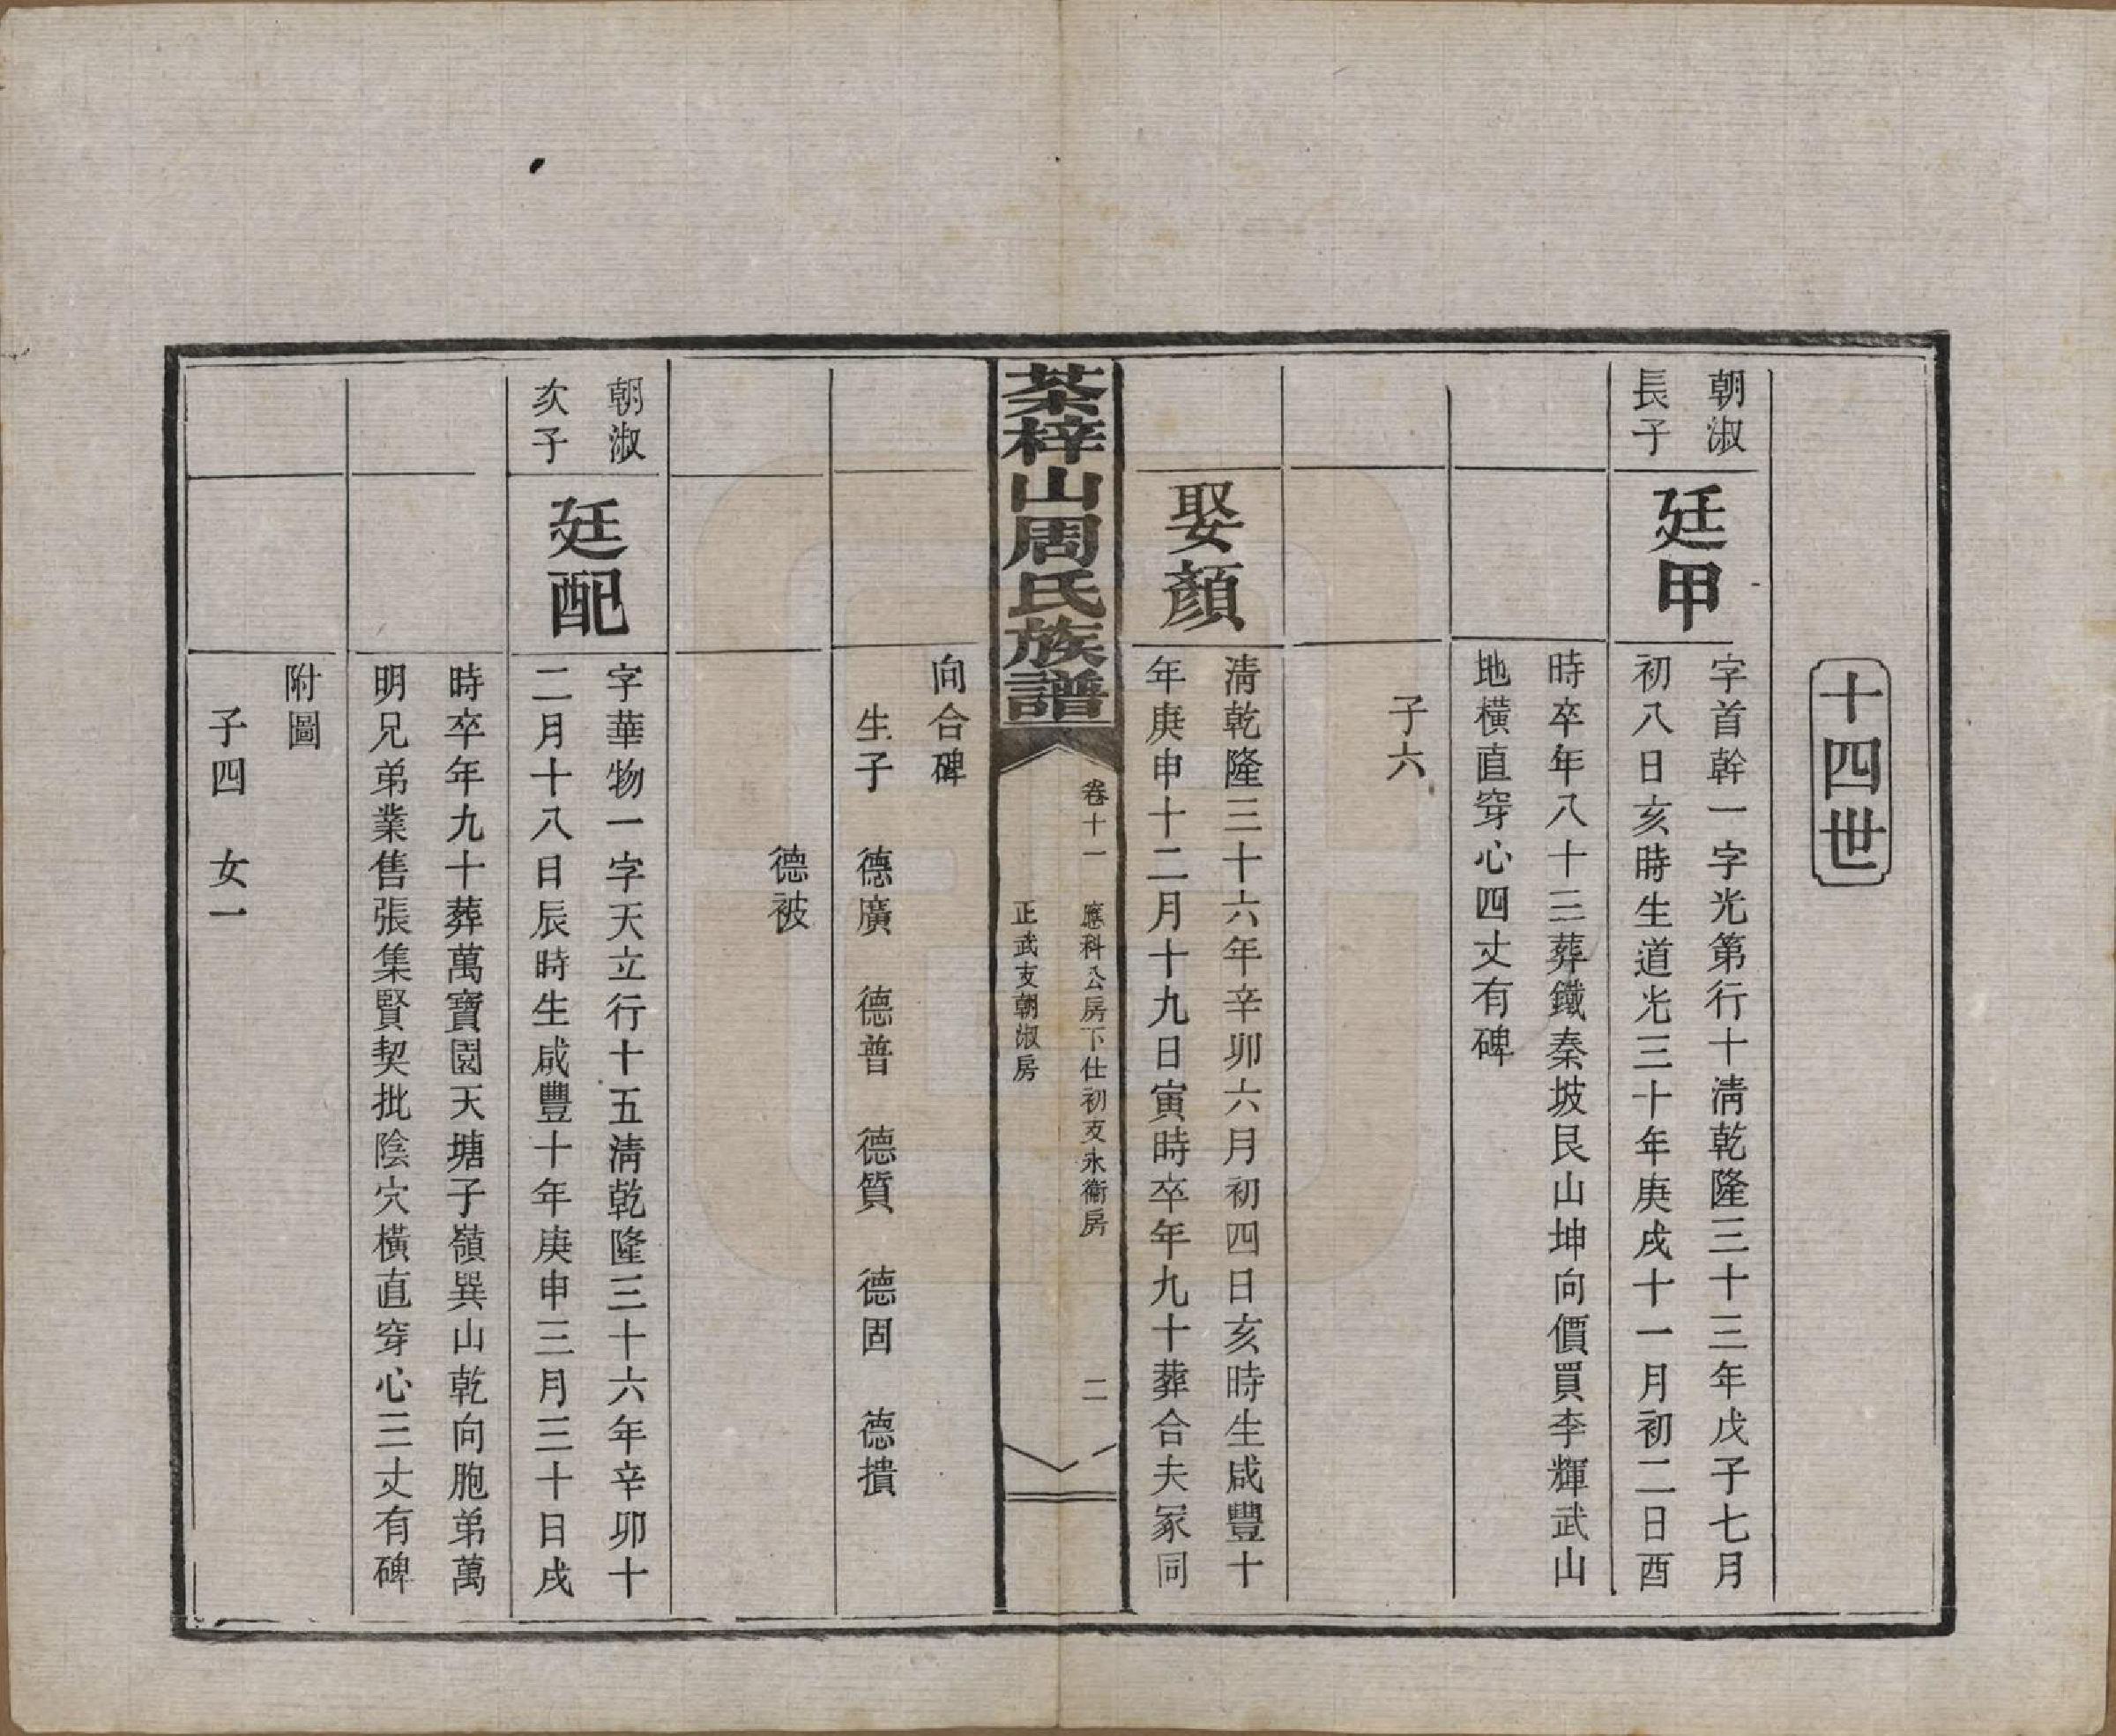 十四世
朝淑
長子
廷甲
字首幹一字光第行十淸乾隆三十三年戊子七月
初八日亥時生道光三十年庚戌十一月初二日酉
時卒年八十三葬鐵秦坡艮山坤向價買李輝武山
地橫直穿心四丈有碑
子六
娶顏
淸乾隆三十六年辛卯六月初四日亥時生咸豐十
年庚申十二月十九日寅時卒年九十葬合夫冢同
茶梓山周氏族譜
卷十一 應科公房下仕初支永衞房
正武支朝淑房
二
向合碑
生子 德廣 德普 德質 德固 德撌
德被
朝淑
次子
廷配
字華物一字天立行十五淸乾隆三十六年辛卯十
二月十八日辰時生咸豐十年庚申三月三十日戌
時卒年九十葬萬寶園天塘子嶺巽山乾向胞弟萬
明兄弟業售張集賢契批陰穴橫直穿心三丈有碑
附圖
子四 女一